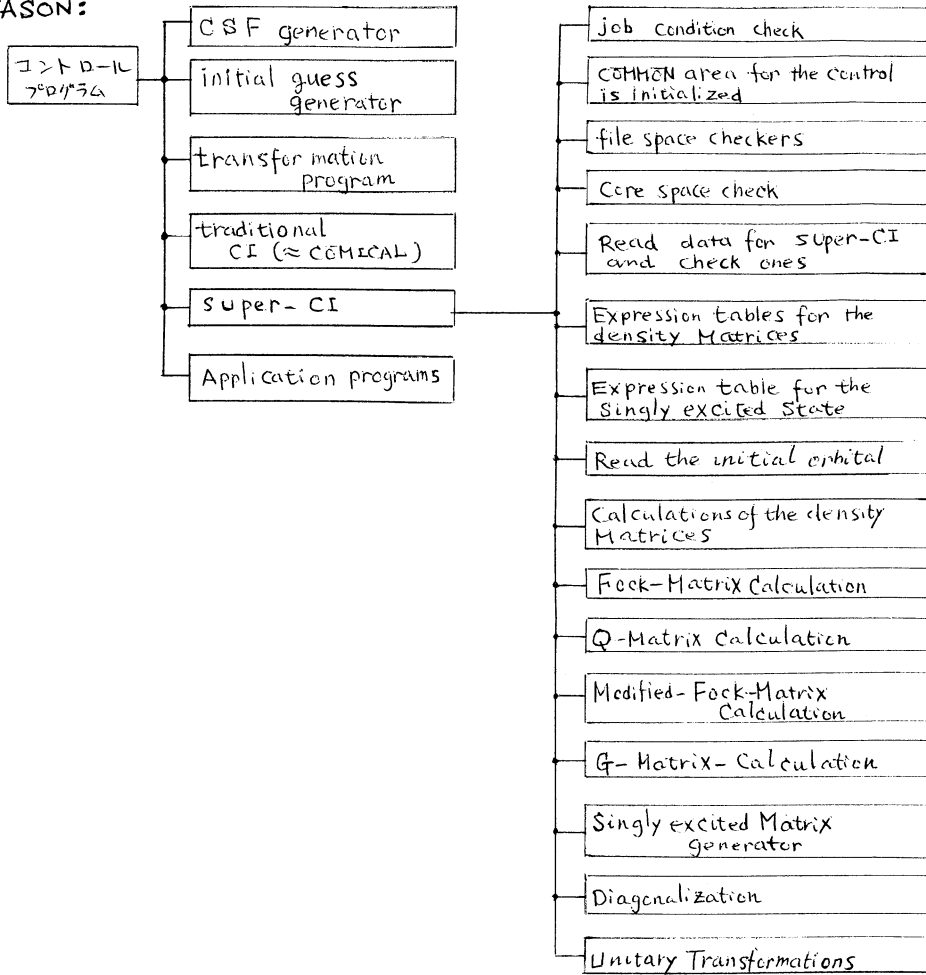 ASON:
コントロール
プログラム
CSF generator
initial guess
generator
transformation
program
traditional
CI (≈ COMICAL)
super-CI
Application programs
job condition check
COMMON area for the control
is initialized
file space checkers
Core space check
Read data for super-CI
and check ones
Expression tables for the
density Matrices
Expression table for the
Singly excited State
Read the initial orbital
Calculations of the density
Matrices
Fock-Matrix Calculation
Q-Matrix Calculation
Modified-Fock-Matrix
Calculation
G-Matrix-Calculation
Singly excited Matrix
generator
Diagonalization
Unitary Transformations